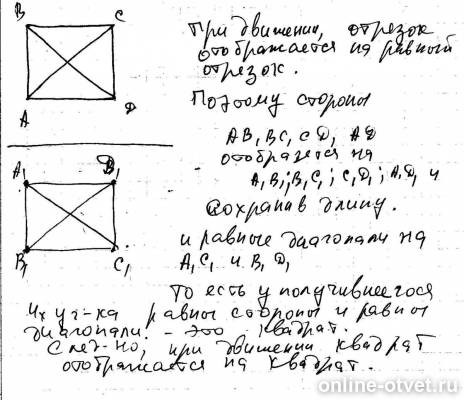 B C
A D
A₁ B₁
B₁ C₁
При движении, отрезок
отображается на равный
отрезок.
Поэтому стороны
AB, BC, CD, AD
отобразятся на
A₁B₁; B₁C₁; C₁D₁; A₁D₁ и
сохранив длину.
и равные диагонали на
A₁C₁ и B₁D₁
То есть у получившегося
4х уг-ка равны стороны и равны
диагонали. - это квадрат.
След-но, при движении квадрат
отображается на квадрат.
online-otvet.ru